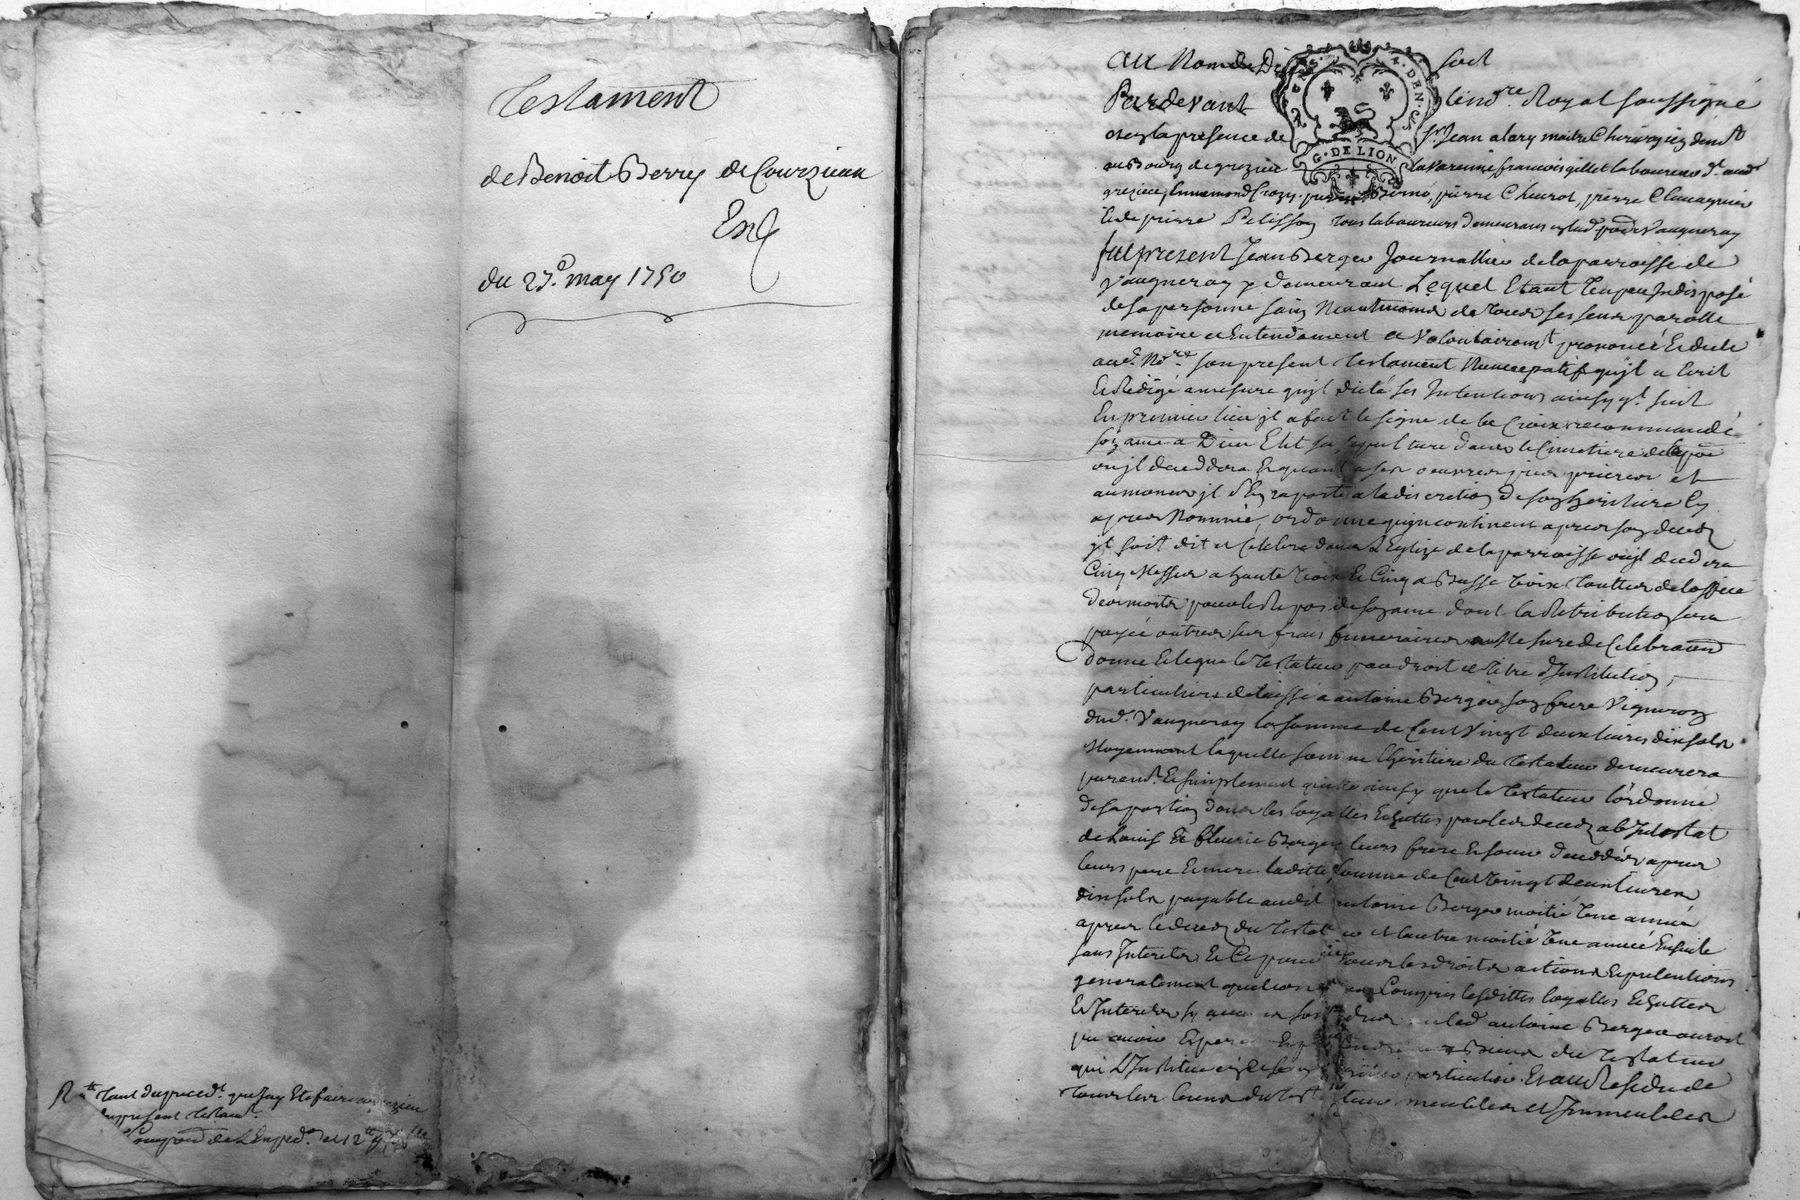 Testament
de Benoit Berry de Courzieux
Exp
du 23e may 1750
Rt. tant du preced.t que
du present Testam.t
au Nom de Dieu soit
Pardevant le no.re Royal soussigné
et en la presence de Sr. Jean alary maitre Chirurgien dem.t
au Bourg de grezieu la Varenne francois gillet laboureur d. aud.
grezieu, pierre Cheurot, pierre
et de pierre Pelisson tous laboureurs demeurans
fut present Jean Berger Journallier de la parroisse de
Vaugneray y demeurant Lequel Etant Un peu Indisposé
de sa personne sain Neantmoins de tous ses sens parolle
memoire et Entendement a Volontairem.t prononcé Et dicté
aud. No.re son present testament Nuncupatif qu'jl a Ecrit
Et Redigé a mesure qu'jl dicté ses Intentions ainsy q.t suit
En premier lieu jl a fait le signe de la Croix recommandé
son ame a Dieu Elit sa sepulture dans le Cimetiere de la p.sse
ou jl decedera Et quant a ses oeuvres pies prieres et
aumones jl s'En raporte a la discretion de son heritiere Cy
apres Nommée, ordonne qu'jncontinent apres son deces
jl soit dit et Celebré dans L'Eglize de la parroisse ou jl decedera
Cinq Messes a haute Voix Et Cinq a Basse Voix toutes de l'office
des morts pour le Repos de son ame dont la Retribution sera
payée outre ses frais funeraires a Mesure de Celebraōn
donne Et legue le Testateur par droit et titre d'Institution
particuliere delaisse a antoine Berger son frere Vigneron
dud. Vaugneray la somme de Cent Vingt deux livres dix sols
Moyennant laquelle somme l'heritiere du testateur demeurera
purem.t Et simplement quitte ainsy que le testateur l'ordonne
de sa portion dans les loyalles Echuttes par les deces ab Intestat
de Louis Et fleurie Berger leurs frere Et soeur decedés apres
leurs pere Et mere laditte somme de Cent Vingt deux livres
dix sols payable audit antoine Berger moitié Une année
apres le deces du Testateur et l'autre moitié Une année Ensuite
sans Interets Et Ce pour tous les droits actions Et pretentions
generalement quelconques Compris lesdittes loyalles Echuttes
Et Interets sy aucuns sont dus que led. antoine Berger auroit
pu avoir Esperer Et pretendre aux Biens du testateur
qui L'Institue En Ce son heritier particulier Et au Residu de
tous les biens du Testateur meubles et Immeubles
G. DE LION